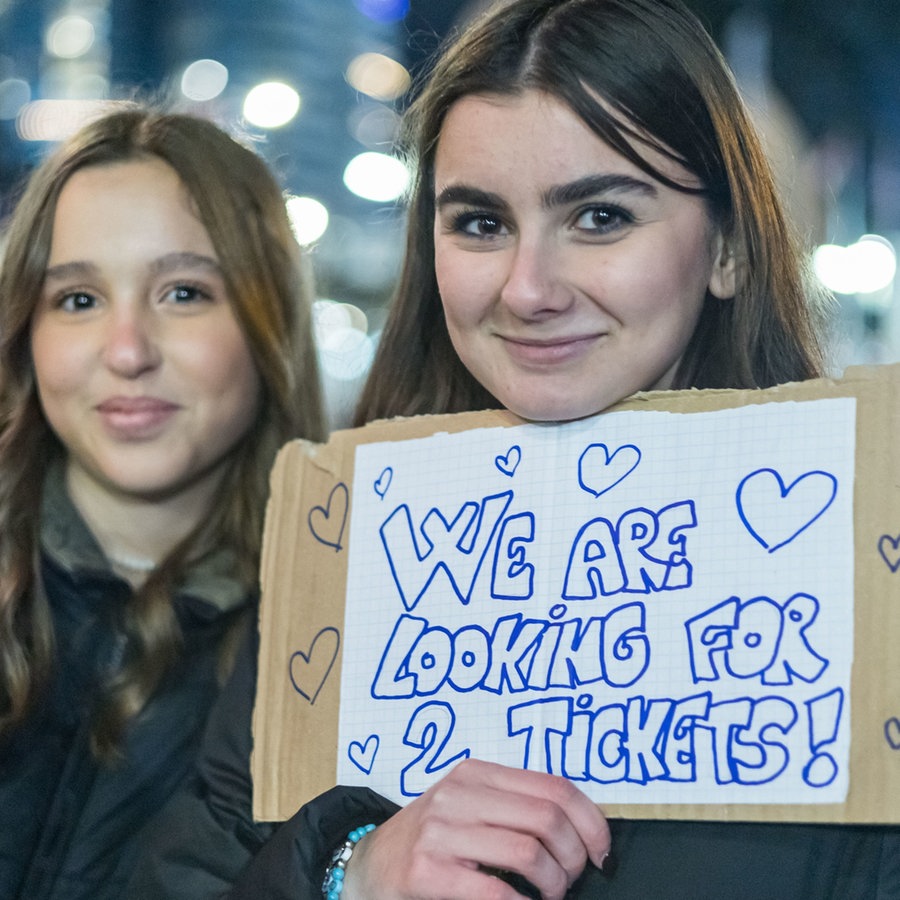 WE ARE
LOOKiNG FOR
2 TiCKETS!